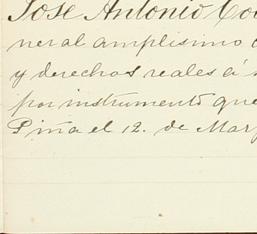 José Antonio Co
neral amplisimo
y derechos reales á
por instrumento que
Piña el 12. de Mar